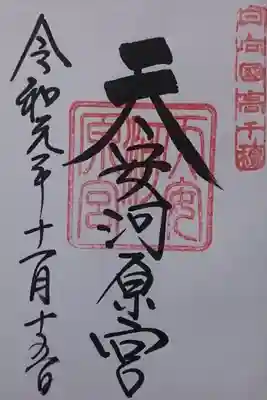 日向國高千穂
天安河原宮
令和元年十一月十五日